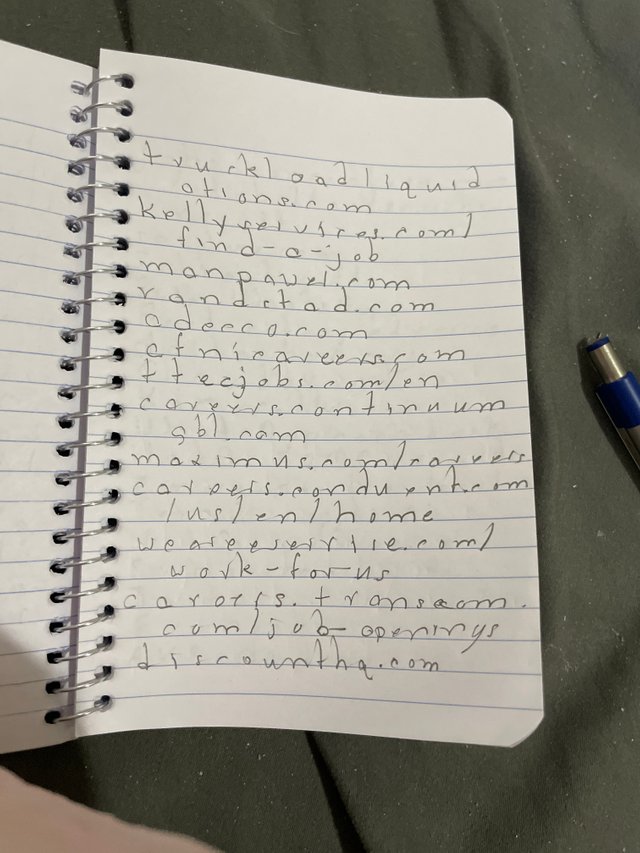 truckloadliquid
ations.com
kellyservices.com/
find-a-job
manpower.com
randstad.com
adecco.com
cfnicareers.com
ttecjobs.com/en
careers.continuum
gbl.com
maximus.com/careers
careers.conduent.com
/us/en/home
work-for-us
careers.transcom.
com/job-openings
discounthq.com